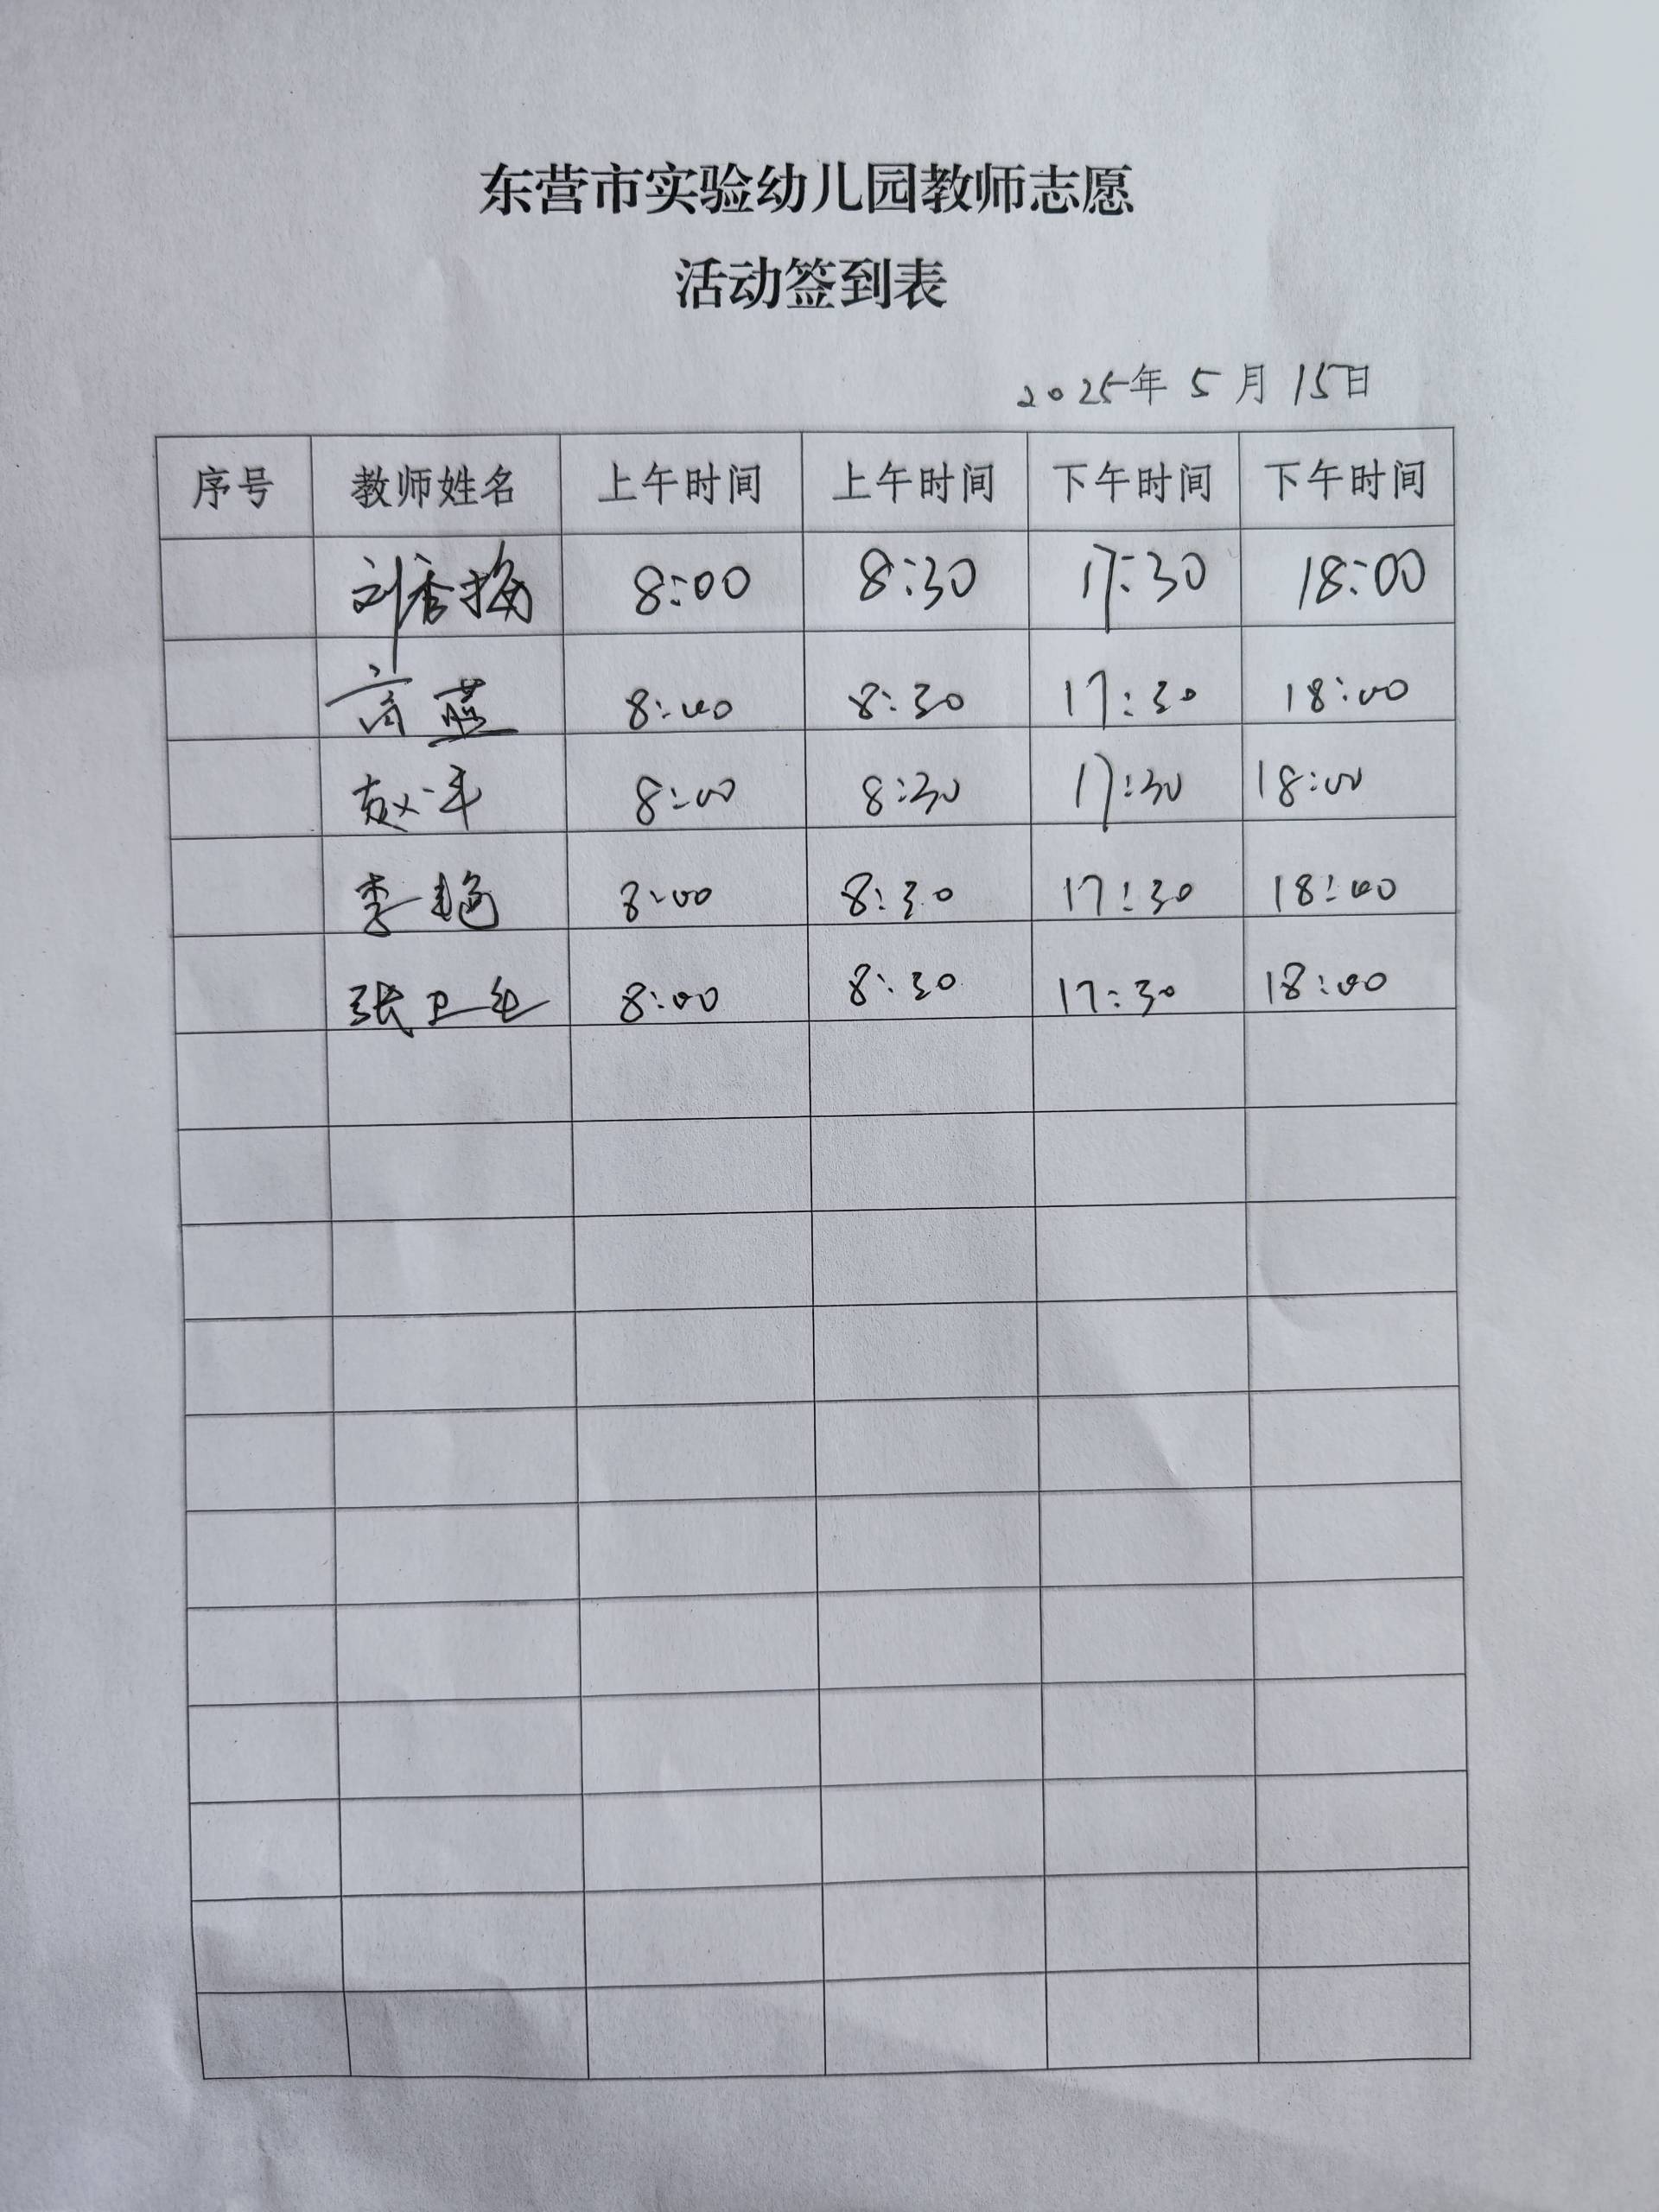 东营市实验幼儿园教师志愿
活动签到表
2025年 5 月 15日
序号 教师姓名 上午时间 上午时间 下午时间 下午时间
刘秀梅 8:00 8:30 17:30 18:00
高燕 8:00 8:30 17:30 18:00
赵 8:00 8:30 17:30 18:00
李艳 8:00 8:30 17:30 18:00
张卫 8:00 8:30 17:30 18:00